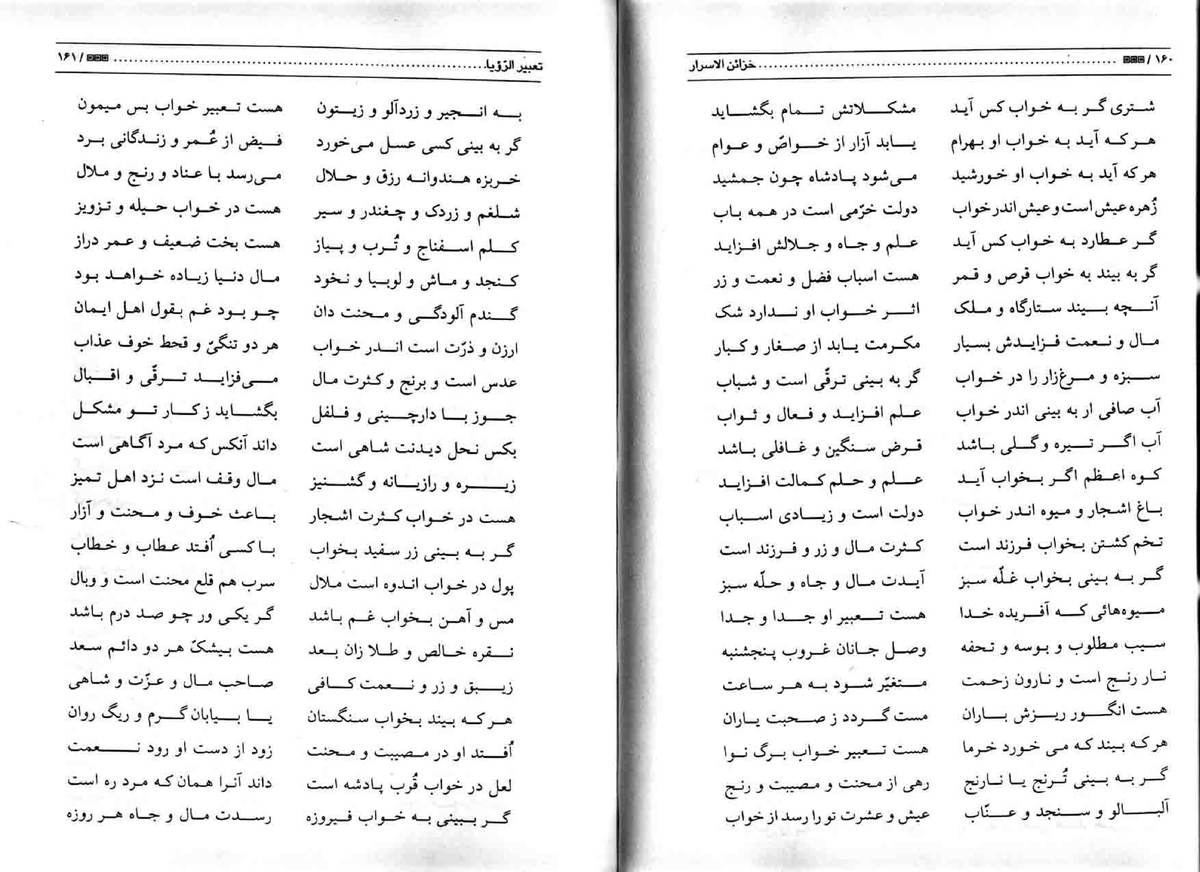 ۱۶۰ / خزائن الاسرار
شتری گر به خواب کس آید مشکلاتش تمام بگشاید
هر که آید به خواب او بهرام یابد آزار از خواصّ و عوام
هر که آید به خواب او خورشید می‌شود پادشاه چون جمشید
زُهره عیش است و عیش اندر خواب دولت خرّمی است در همه باب
گر عطارد به خواب کس آید علم و جاه و جلالش افزاید
گر به بیند به خواب قرص و قمر هست اسباب فضل و نعمت و زر
آنچه بیند ستارگاه و ملک اثر خواب او ندارد شک
مال و نعمت فزایدش بسیار مکرمت یابد از صغار و کبار
سبزه و مرغ‌زار را در خواب گر به بینی ترقّی است و شباب
آب صافی ار به بینی اندر خواب علم افزاید و فعال و ثواب
آب اگر تیره و گلی باشد قرض سنگین و غافلی باشد
کوه اعظم اگر بخواب آید علم و حلم کمالت افزاید
باغ اشجار و میوه اندر خواب دولت است و زیادی اسباب
تخم کشتن بخواب فرزند است کثرت مال و زر و فرزند است
گر به بینی بخواب غلّه سبز آیدت مال و جاه و حلّه سبز
میوه‌هائی که آفریده خدا هست تعبیر او جدا و جدا
سیب مطلوب و بوسه و تحفه وصل جانان غروب پنجشنبه
نار رنج است و نارون زحمت متغیّر شود به هر ساعت
هست انگور ریزش باران مست گردد ز صحبت یاران
هر که بیند که می خورد خرما هست تعبیر خواب برگ نوا
گر به بینی تُرنج یا نارنج رهی از محنت و مصیبت و رنج
آلبالو و سنجد و عنّاب عیش و عشرت تو را رسد از خواب
تعبیر الرّؤیا / ۱۶۱
به انجیر و زردآلو و زیتون هست تعبیر خواب بس میمون
گر به بینی کسی عسل می‌خورد فیض از عُمر و زندگانی برد
خربزه هندوانه رزق و حلال می‌رسد با عناد و رنج و ملال
شلغم و زردک و چغندر و سیر هست در خواب حیله و تزویز
کلم اسفناج و تُرب و پیاز هست بخت ضعیف و عمر دراز
کنجد و ماش و لوبیا و نخود مال دنیا زیاده خواهد بود
گندم آلودگی و محنت دان جو بود غم بقول اهل ایمان
ارزن و ذرّت است اندر خواب هر دو تنگیّ و قحط خوف عذاب
عدس است و برنج و کثرت مال می‌فزاید ترقّی و اقبال
جوز با دارچینی و فلفل بگشاید ز کار تو مشکل
بکس نحل دیدنت شاهی است داند آنکس که مرد آگاهی است
زیره و رازیانه و گشنیز مال وقف است نزد اهل تمیز
هست در خواب کثرت اشجار باعث خوف و محنت و آزار
گر به بینی زر سفید بخواب با کسی اُفتد عطاب و خطاب
پول در خواب اندوه است ملال سرب هم قلع محنت است و وبال
مس و آهن بخواب غم باشد گر یکی ور چو صد درم باشد
نقره خالص و طلا زان بعد هست بیشکّ هر دو دائم سعد
زیبق و زر و نعمت کافی صاحب مال و عزّت و شاهی
هر که بیند بخواب سنگستان یا بیابان گرم و ریگ روان
اُفتد او در مصیبت و محنت زود از دست او رود نعمت
لعل در خواب قُرب پادشه است داند آنرا همان که مرد ره است
گر ببینی به خواب فیروزه رسدت مال و جاه هر روزه